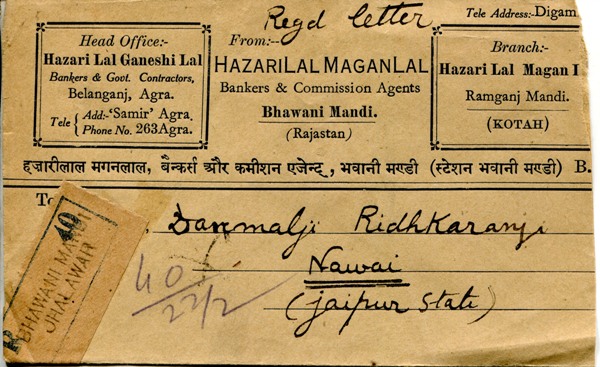 Regd letter
Tele Address:- Digam
Head Office:-
Hazari Lal Ganeshi Lal
Bankers & Govt. Contractors,
Belanganj, Agra.
Tele { Add:- 'Samir' Agra.
Phone No. 263 Agra.
From:--
HAZARILAL MAGANLAL
Bankers & Commission Agents
Bhawani Mandi.
(Rajastan)
Branch:-
Hazari Lal Magan
Ramganj Mandi.
(KOTAH)
हज़ारीलाल मगनलाल, बैन्कर्स और कमीशन एजेन्ट, भवानी मण्डी (स्टेशन भवानी मण्डी) B.
To
Danmalji Ridhkaranji
Nawai
(Jaipur State)
40
BHAWANI
JHALAWAR
40
22/2